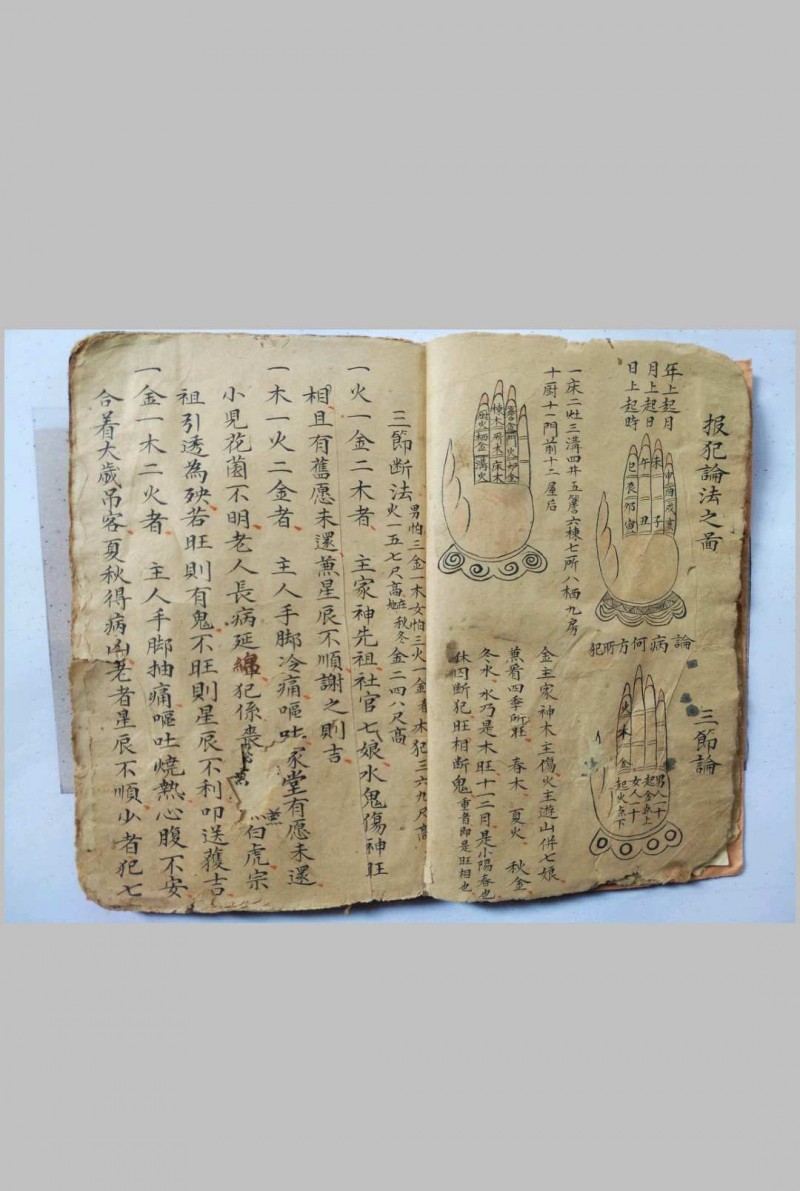 报犯論法之啚
年上起月
月上起日
日上起時
申酉戌亥
未子
午丑
巳辰卯寅
一床二灶三溝四井五簷六棟七所八栖九房
十厨十一門前十二屋后
論病何方所犯
三節論
火木金
男人一十
起金氣上
女人一十
起火氣下
金主家神木主傷火主遊山併七娘
蕉看四季所旺 春木、夏火 秋金
冬水、水乃是木旺、十一二月、是小陽春也
休囚断犯、旺相断鬼、重者即是旺相也
三節断法 男怕三金一木女怕三火一金看木犯三六九尺高
火一五七尺高在秋冬金二四八尺高
一火一金二木者、主家神先祖社官七娘水鬼傷神旺
相且有舊愿未還蕉星辰不順謝之則吉
一木一火二金者 主人手脚冷痛嘔吐家堂有愿未還
小児花菌不明、老人長病延綿犯係喪 白虎宗
祖引透為殃若旺則有鬼不旺則星辰不利叩送獲吉
一金一木二火者、主人手脚抽痛嘔吐燒熱心腹不安
合着太歲吊客夏秋得病凶老者星辰不順少者犯七